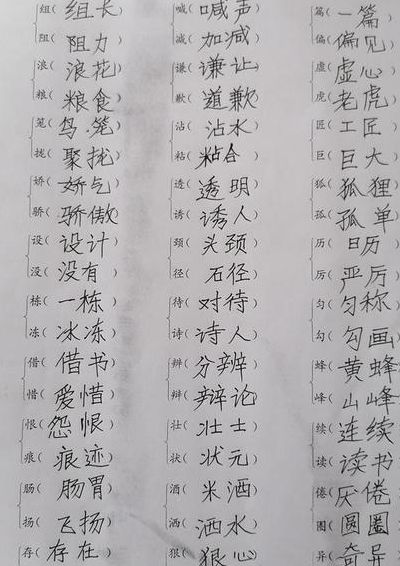 组(组长)
阻(阻力)
浪(浪花)
粮(粮食)
笼(鸟笼)
拢(聚拢)
娇(娇气)
骄(骄傲)
设(设计)
没(没有)
栋(一栋)
冻(冰冻)
借(借书)
惜(爱惜)
恨(怨恨)
痕(痕迹)
肠(肠胃)
扬(飞扬)
存(存在)
喊(喊声)
减(加减)
谦(谦让)
歉(道歉)
沾(沾水)
粘(粘合)
透(透明)
诱(诱人)
颈(头颈)
径(石径)
待(对待)
诗(诗人)
辨(分辨)
辩(辩论)
壮(壮士)
状(状元)
酒(米洒)
洒(洒水)
狠(狠心)
篇(一篇
偏(偏见
虚(虚心
虎(老虎
匠(工匠
巨(巨大
狐(狐狸
孤(孤单
历(日历
厉(严厉
匀(匀称
勾(勾画
蜂(黄蜂
峰(山峰
续(连续
读(读书
倦(厌倦
圈(圆圈
异(奇异